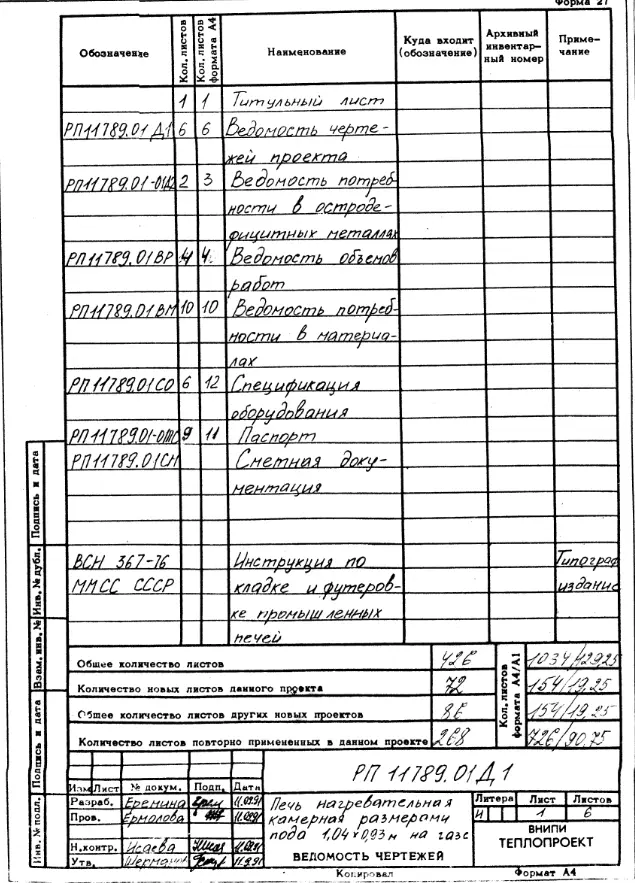 Форма 27
Обозначение Кол. листов Кол. листов формата А4 Наименование Куда входит (обозначение) Архивный инвентарный номер Примечание
1 1 Титульный лист
РП11789.01 Д1 6 6 Ведомость черте-
жей проекта
РП11789.01-01Д2 2 3 Ведомость потреб-
ности в остроде-
фицитных металлах
РП11789.01ВР 4 4 Ведомость объемов
работ
РП11789.01ВМ 10 10 Ведомость потреб-
ности в материа-
лах
РП11789.01СО 6 12 Спецификация
оборудования
РП11789.01-01ПС 9 11 Паспорт
РП11789.01СМ Сметная доку-
ментация
ВСН 367-76 Инструкция по Типограф
ММСС СССР кладке и футеров- издание
ке промышленных
печей
Общее количество листов 426 1034/129,25
Количество новых листов данного проекта 72 154/19,25
Общее количество листов других новых проектов 86 154/19,25
Количество листов повторно примененных в данном проекте 268 726/90,75
Кол. листов формата А4/А1
РП 11789.01Д1
Изм Лист № докум. Подп. Дата
Разраб. Еремина 11.09.91
Пров. Ермолова 11.09.91
Н.контр. Исаева 11.09.91
Утв. 11.9.91
Печь нагревательная
камерная размерами
пода 1,04х0,93м на газе
ВЕДОМОСТЬ ЧЕРТЕЖЕЙ
Литера Лист Листов
И 1 6
ВНИПИ
ТЕПЛОПРОЕКТ
Копировал Формат А4
Подпись и дата
Инв. № дубл.
Взам. инв. №
Подпись и дата
Инв. № подл.